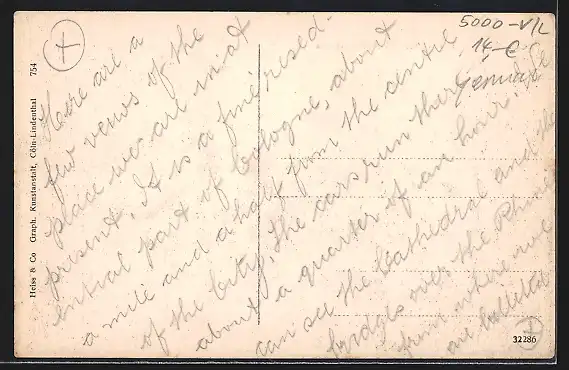 Here are a
few views of the
place we are in at
present. It is a fine resed-
ential part of Cologne, about
a mile and a half from the centre
of the City. The cars run there in
about a quarter of an hour. We
can see the Cathedral and the
bridges over the Rhine
from where we
are billeted
5000-V/L
14-€
754
Heiss & Co Graph. Kunstanstalt, Cöln-Lindenthal
32286